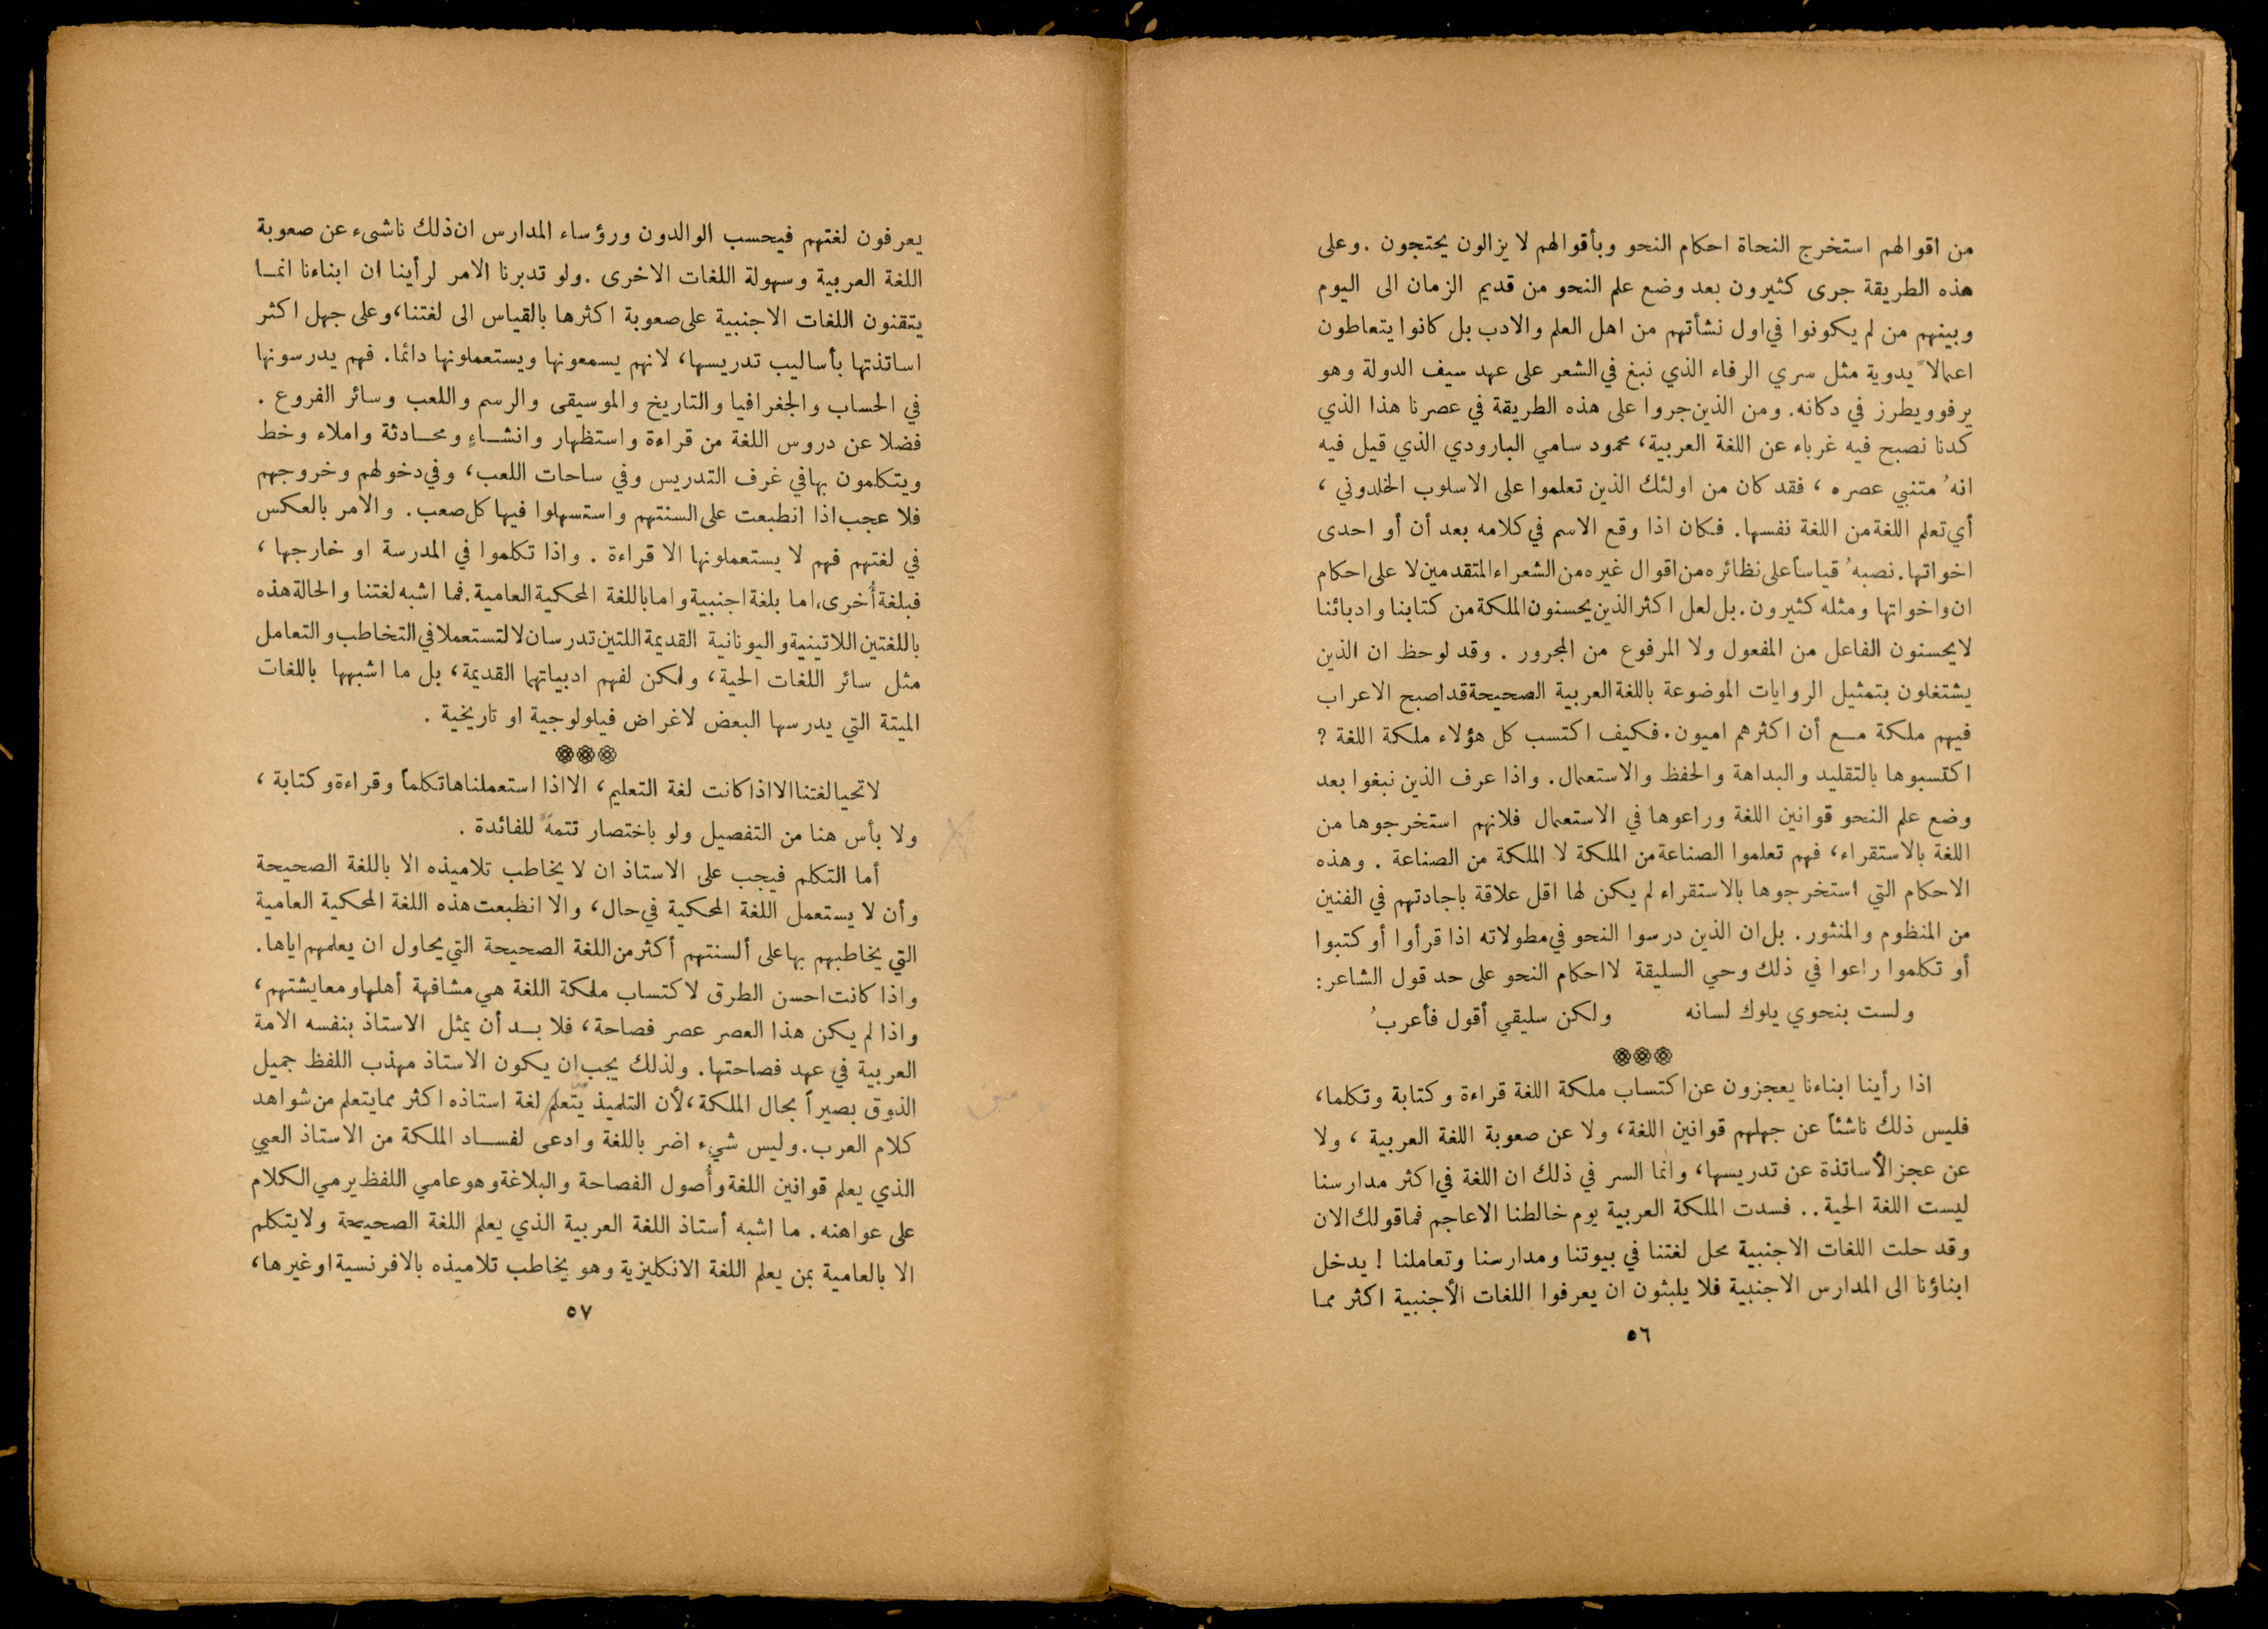 من اقوالهم استخرج النحاة احكام النحو وبأقوالهم لا يزالون يحتجون . وعلى
هذه الطريقة جرى كثيرون بعد وضع علم النحو من قديم الزمان الى اليوم
وبينهم من لم يكونوا في اول نشأتهم من اهل العلم والادب بل كانوا يتعاطون
اعمالاً يدوية مثل سري الرفاء الذي نبغ في الشعر على عهد سيف الدولة وهو
يرفو ويطرز في دكانه . ومن الذين جروا على هذه الطريقة في عصرنا هذا الذي
كدنا نصبح فيه غرباء عن اللغة العربية ، محمود سامي البارودي الذي قيل فيه
انهُ متنبي عصره ، فقد كان من اولئك الذين تعلموا على الاسلوب الخلدوني ،
أي تعلم اللغة من اللغة نفسها . فكان اذا وقع الاسم في كلامه بعد أن أو احدى
اخواتها . نصبهُ قياساً على نظائره من اقوال غيره من الشعراء المتقدمين لا على احكام
ان واخواتها ومثله كثيرون . بل لعل اكثر الذين يحسنون الملكة من كتابنا وادبائنا
لا يحسنون الفاعل من المفعول ولا المرفوع من المجرور . وقد لوحظ ان الذين
يشتغلون بتمثيل الروايات الموضوعة باللغة العربية الصحيحة قد اصبح الاعراب
فيهم ملكة مع أن اكثرهم اميون . فكيف اكتسب كل هؤلاء ملكة اللغة ؟
اكتسبوها بالتقليد والبداهة والحفظ والاستعمال . واذا عرف الذين نبغوا بعد
وضع علم النحو قوانين اللغة وراعوها في الاستعمال فلانهم استخرجوها من
اللغة بالاستقراء ، فهم تعلموا الصناعة من الملكة لا الملكة من الصناعة . وهذه
الاحكام التي استخرجوها بالاستقراء لم يكن لها اقل علاقة باجادتهم في الفنين
من المنظوم والمنثور . بل ان الذين درسوا النحو في مطولاته اذا قرأوا أو كتبوا
أو تكلموا راعوا في ذلك وحي السليقة لا احكام النحو على حد قول الشاعر :
ولست بنحوي يلوك لسانه ولكن سليقي أقول فأعربُ
اذا رأينا ابناءنا يعجزون عن اكتساب ملكة اللغة قراءة وكتابة وتكلما ،
فليس ذلك ناشئاً عن جهلهم قوانين اللغة ، ولا عن صعوبة اللغة العربية ، ولا
عن عجز الأساتذة عن تدريسها ، وانما السر في ذلك ان اللغة في اكثر مدارسنا
ليست اللغة الحية . . فسدت الملكة العربية يوم خالطنا الاعاجم فما قولك الان
وقد حلت اللغات الاجنبية محل لغتنا في بيوتنا ومدارسنا وتعاملنا ! يدخل
ابناؤنا الى المدارس الاجنبية فلا يلبثون ان يعرفوا اللغات الأجنبية اكثر مما
٥٦
يعرفون لغتهم فيحسب الوالدون ورؤساء المدارس ان ذلك ناشىء عن صعوبة
اللغة العربية وسهولة اللغات الاخرى . ولو تدبرنا الامر لرأينا ان ابناءنا انما
يتقنون اللغات الاجنبية على صعوبة اكثرها بالقياس الى لغتنا ، وعلى جهل اكثر
اساتذتها بأساليب تدريسها ، لانهم يسمعونها ويستعملونها دائما . فهم يدرسونها
في الحساب والجغرافيا والتاريخ والموسيقى والرسم واللعب وسائر الفروع .
فضلا عن دروس اللغة من قراءة واستظهار وانشاءٍ ومحادثة واملاء وخط
ويتكلمون بها في غرف التدريس وفي ساحات اللعب ، وفي دخولهم وخروجهم
فلا عجب اذا انطبعت على السنتهم واستسهلوا فيها كل صعب . والامر بالعكس
في لغتهم فهم لا يستعملونها الا قراءة . واذا تكلموا في المدرسة او خارجها ،
فبلغة أُخرى ، اما بلغة اجنبية واما باللغة المحكية العامية . فما اشبه لغتنا والحالة هذه
باللغتين اللاتينية واليونانية القديمة اللتين تدرسان لا لتستعملا في التخاطب والتعامل
مثل سائر اللغات الحية ، ولكن لفهم ادبياتهما القديمة ، بل ما اشبهها باللغات
الميتة التي يدرسها البعض لاغراض فيلولوجية او تاريخية .
لا تحيا لغتنا الا اذا كانت لغة التعليم ، الا اذا استعملناها تكلماً وقراءة وكتابة ،
ولا بأس هنا من التفصيل ولو باختصار تتمةً للفائدة .
أما التكلم فيجب على الاستاذ ان لا يخاطب تلاميذه الا باللغة الصحيحة
وأن لا يستعمل اللغة المحكية في حال ، والا انطبعت هذه اللغة المحكية العامية
التي يخاطبهم بها على ألسنتهم أكثر من اللغة الصحيحة التي يحاول ان يعلمهم اياها .
واذا كانت احسن الطرق لاكتساب ملكة اللغة هي مشافهة أهلها ومعايشتهم ،
واذا لم يكن هذا العصر عصر فصاحة ، فلا بد أن يمثل الاستاذ بنفسه الامة
العربية في عهد فصاحتها . ولذلك يجب ان يكون الاستاذ مهذب اللفظ جميل
الذوق بصيراً بحال الملكة ، لأن التلميذ يتعلم لغة استاذه اكثر مما يتعلم من شواهد
كلام العرب . وليس شيء اضر باللغة وادعى لفساد الملكة من الاستاذ العيي
الذي يعلم قوانين اللغة وأُصول الفصاحة والبلاغة وهو عامي اللفظ يرمي الكلام
على عواهنه . ما اشبه أستاذ اللغة العربية الذي يعلم اللغة الصحيحة ولا يتكلم
الا بالعامية بمن يعلم اللغة الانكليزية وهو يخاطب تلاميذه بالافرنسية او غيرها ،
٥٧